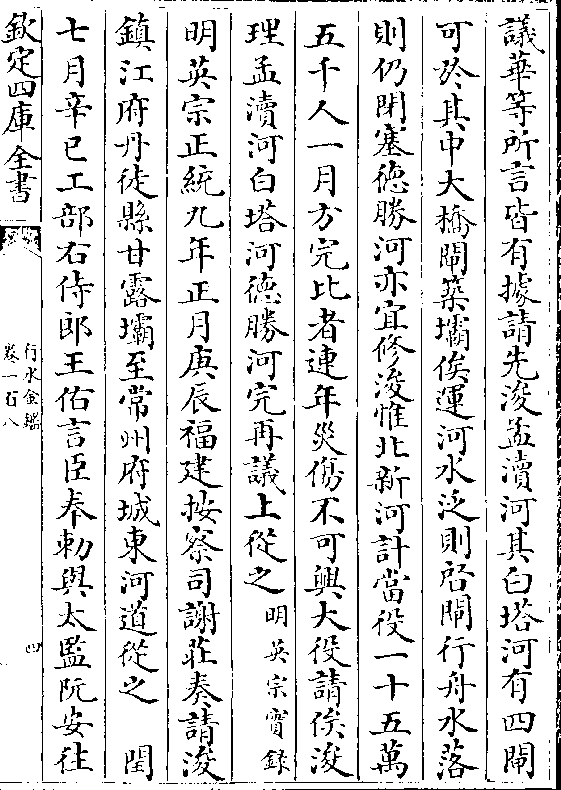 議華等所言皆有據請先浚孟瀆河其白塔河有四閘
可於其中大橋閘築壩俟運河水泛則啓閘行舟水落
則仍閉塞德勝河亦宜修浚惟北新河計當役一十五萬
五千人一月方完比者連年災傷不可興大役請俟浚
理孟瀆河白塔河德勝河完再議上從之明英宗實錄
明英宗正統九年正月庚辰福建按察司謝莊奏請浚
鎮江府丹徒縣甘露壩至常州府城東河道從之　閏
七月辛巳工部右侍郎王佑言臣奉勅與太監阮安往
欽定四庫全書
行水金鑑
卷一百八
四